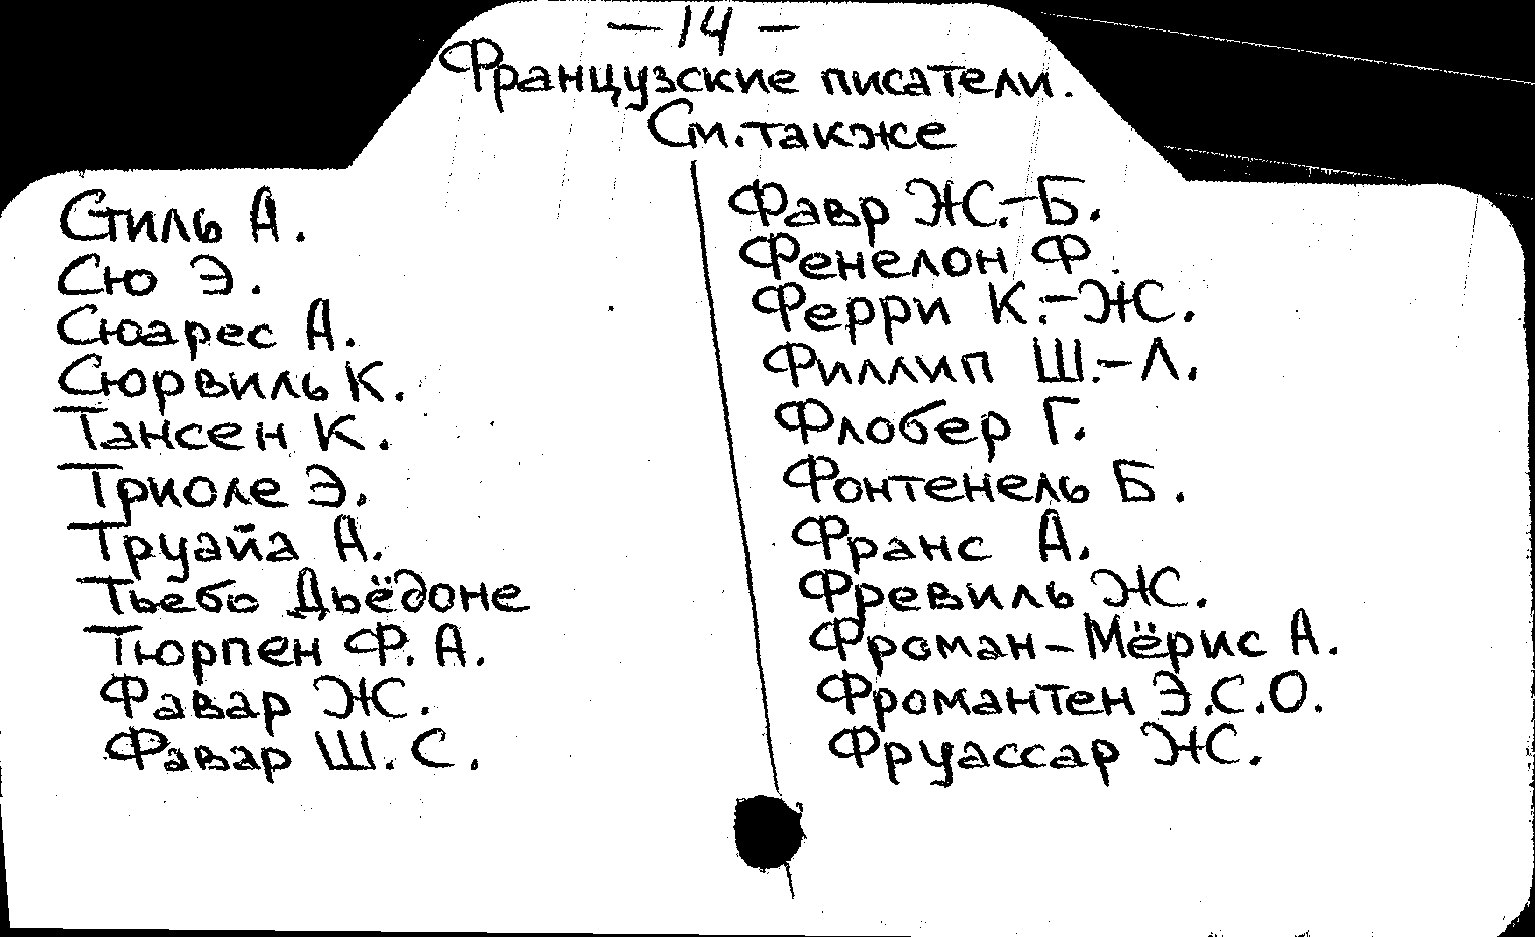 — 14 —
Французские писатели.
См. также
Стиль А.
Сю Э.
Сюарес А.
Сюрвиль К.
Тансен К.
Триоле Э.
Труайа А.
Тьебо Дьёдоне
Тюрпен Ф. А.
Фавар Ж.
Фавар Ш. С.
Фавр Ж.-Б.
Фенелон Ф.
Ферри К.-Ж.
Филлип Ш.-Л.
Флобер Г.
Фонтенель Б.
Франс А.
Фревиль Ж.
Фроман-Мёрис А.
Фромантен Э.С.О.
Фруассар Ж.